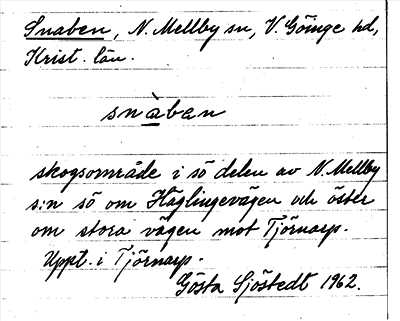 Snaben, N. Mellby sn, V. Göinge hd,
Krist. län.
snàben
skogsområde i sö delen av N. Mellby
s:n sö om Häglingevägen och öster
om stora vägen mot Tjörnarp.
Uppt. i Tjörnarp.
Gösta Sjöstedt 1962.